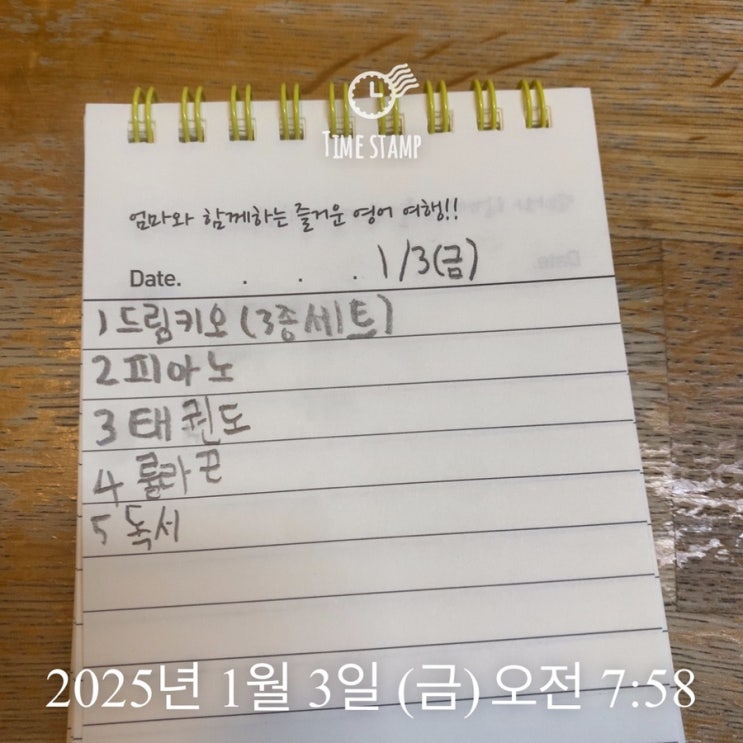 TIME STAMP
엄마와 함께하는 즐거운 영어 여행!!
Date. . . . 1/3(금)
1 드림키오 (3종세트)
2 피아노
3 태권도
4 룰라끈
5 독서
2025년 1월 3일 (금) 오전 7:58